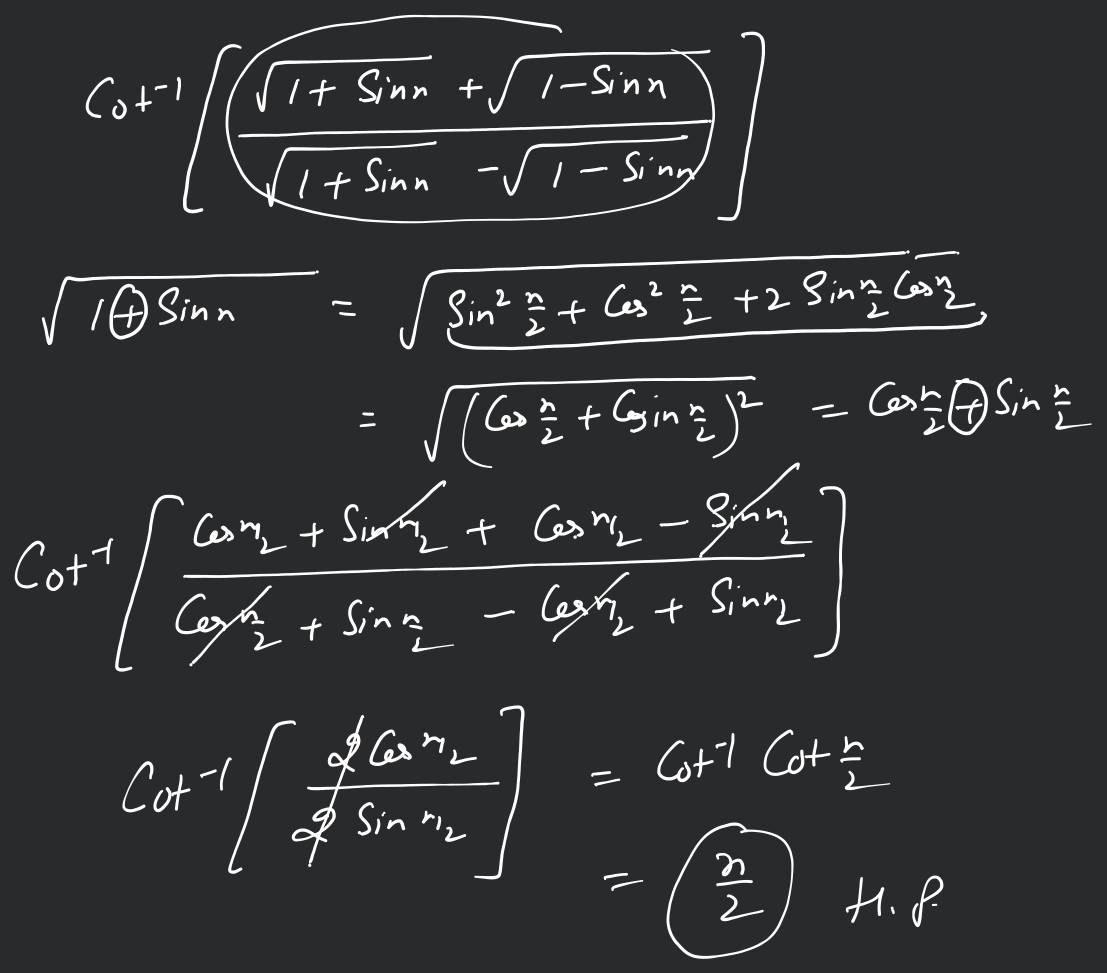 Cot⁻¹ [ (√(1 + Sin n) + √(1 − Sin n)) / (√(1 + Sin n) − √(1 − Sin n)) ]
√(1 ⊕ Sin n) = √(Sin² n/2 + Cos² n/2 + 2 Sin n/2 Cos n/2)
= √((Cos n/2 + Sin n/2)²) = Cos n/2 ⊕ Sin n/2
Cot⁻¹ [ (Cos n/2 + Sin n/2 + Cos n/2 − Sin n/2) / (Cos n/2 + Sin n/2 − Cos n/2 + Sin n/2) ]
Cot⁻¹ [ (2 Cos n/2) / (2 Sin n/2) ] = Cot⁻¹ Cot n/2
= n/2 H.P.